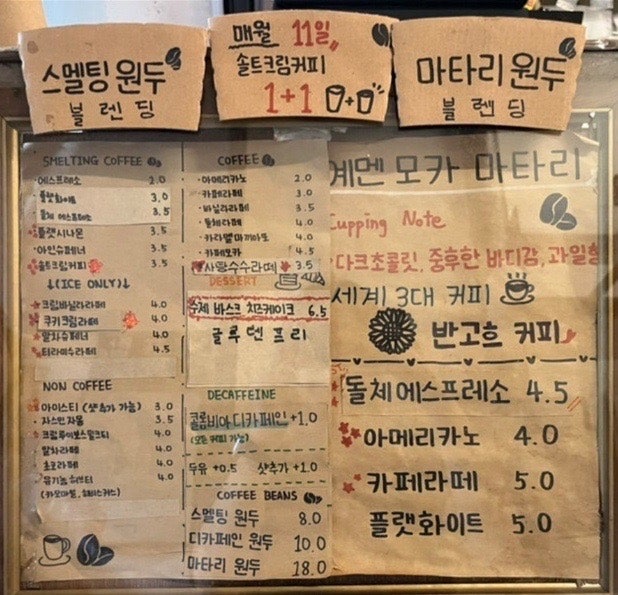 스멜팅 원두
블렌딩
매월 11일
솔트크림커피
1+1
마타리 원두
블렌딩
SMELTING COFFEE
에스프레소 2.0
플랫화이트 3.0
돌체 에스프레소 3.5
플랫시나몬 3.5
아인슈페너 3.5
솔트크림커피 3.5
↓(ICE ONLY)↓
크림바닐라라떼 4.0
쿠키크림라떼 4.0
말차슈페너 4.0
티라미수라떼 4.5
NON COFFEE
아이스티 (샷추가 가능) 3.0
자스민자몽 3.5
크림루이보스밀크티 4.0
말차라떼 4.0
초코라떼 4.0
유기농 허브티 4.0
(카모마일,
COFFEE
아메리카노 2.0
카페라떼 3.0
바닐라라떼 3.5
돌체라떼 4.0
카라멜마끼아또 4.0
카페모카 4.5
사탕수수라떼 3.5
DESSERT
수제 바스크 치즈케이크 6.5
글루텐프리
DECAFFEINE
콜롬비아 디카페인 +1.0
(모든 커피 가능)
두유 +0.5 샷추가 +1.0
COFFEE BEANS
스멜팅 원두 8.0
디카페인 원두 10.0
마타리 원두 18.0
예멘 모카 마타리
Cupping Note
다크초콜릿, 중후한 바디감, 과일향
세계 3대 커피
반고흐 커피
돌체에스프레소 4.5
아메리카노 4.0
카페라떼 5.0
플랫화이트 5.0